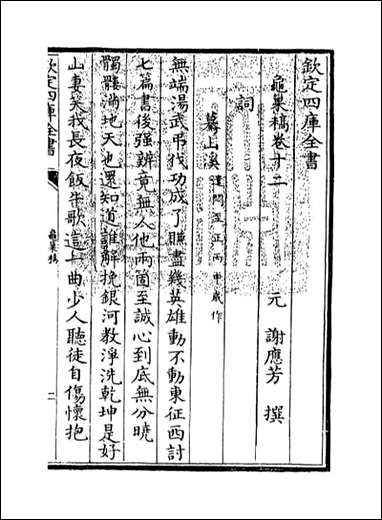 欽定四庫全書
龜巢稿卷十二
元 謝應芳 撰
詞
驀上溪 遣悶至正丙申歲作
無端湯武弔伐功成了賺盡幾英雄動不動東征西討
七篇書後強辨竟無人他兩箇至誠心到底無分曉
髑髏滿地天也還知道誰解挽銀河教淨洗乾坤是好
山妻笑我長夜飯牛歌這一曲少人聽徒自傷懷抱
欽定四庫全書
龜巢稿